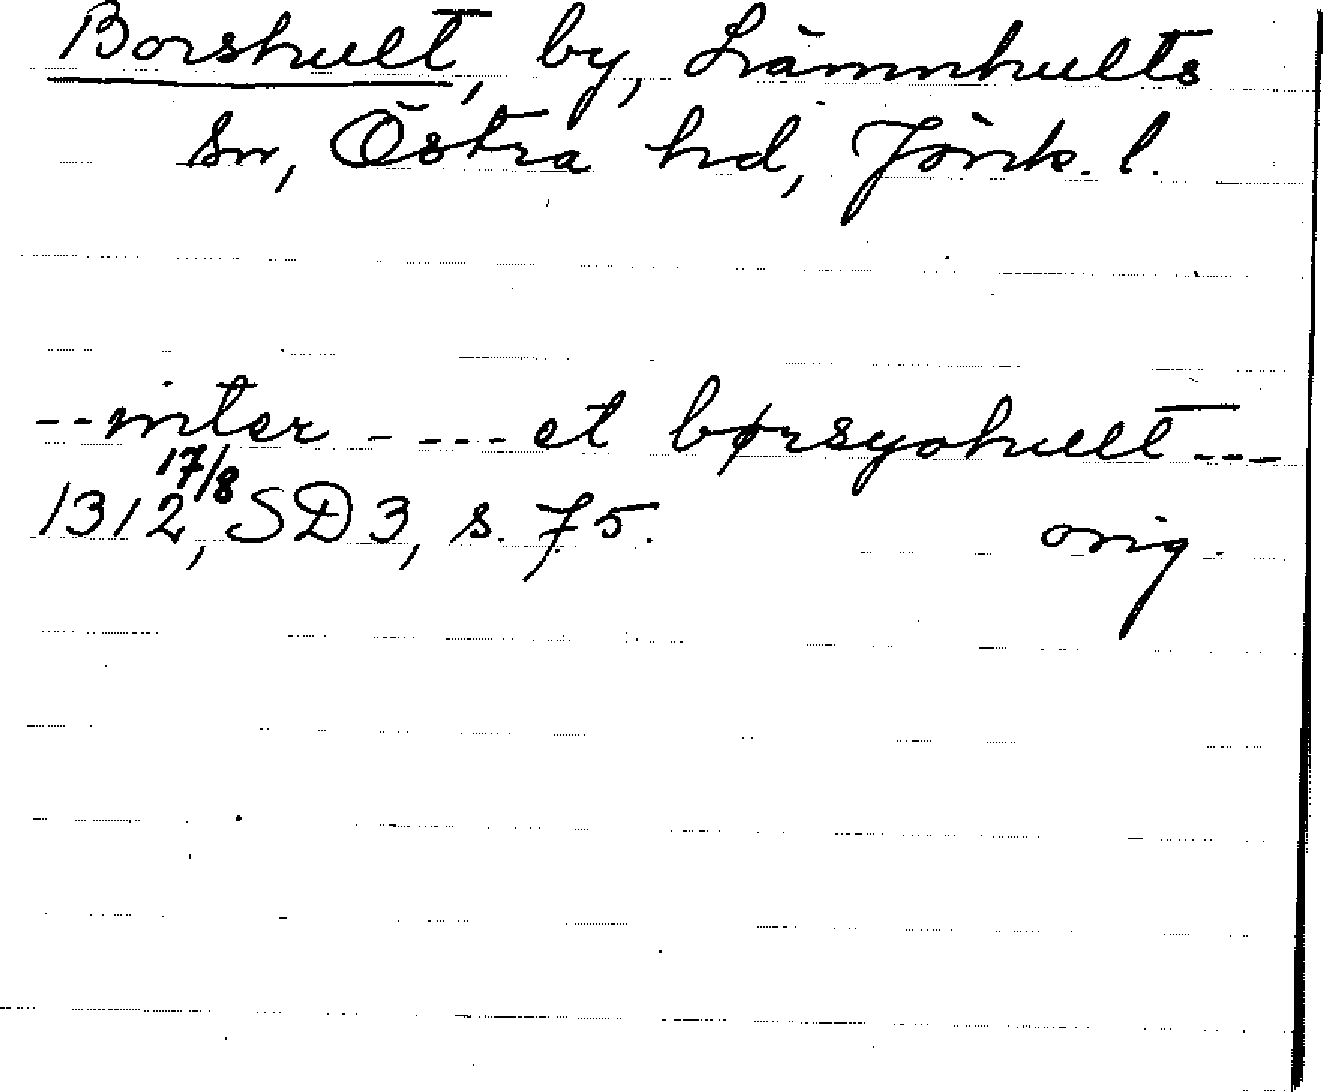 Borshult, by, Lämnhults
sn, Östra hd, Jönk. l.
-- inter - --- et børsyohult ---
1312 17/8, SD 3, s. 75. orig.